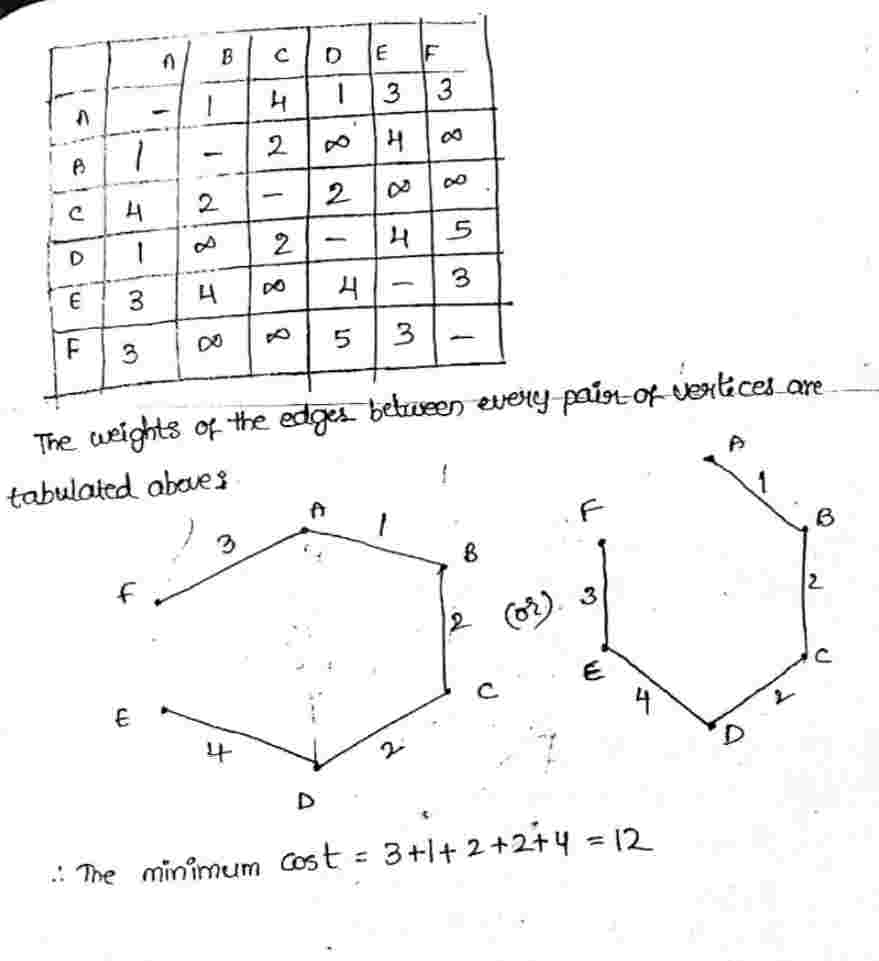 A B C D E F
A - 1 4 1 3 3
B 1 - 2 ∞ 4 ∞
C 4 2 - 2 ∞ ∞
D 1 ∞ 2 - 4 5
E 3 4 ∞ 4 - 3
F 3 ∞ ∞ 5 3 -
The weights of the edges between every pair of vertices are
tabulated above:
A
3
1
F
B
2
E
C
4
2
D
(or)
A
1
F
B
3
2
E
C
4
2
D
∴ The minimum cost = 3+1+2+2+4 = 12